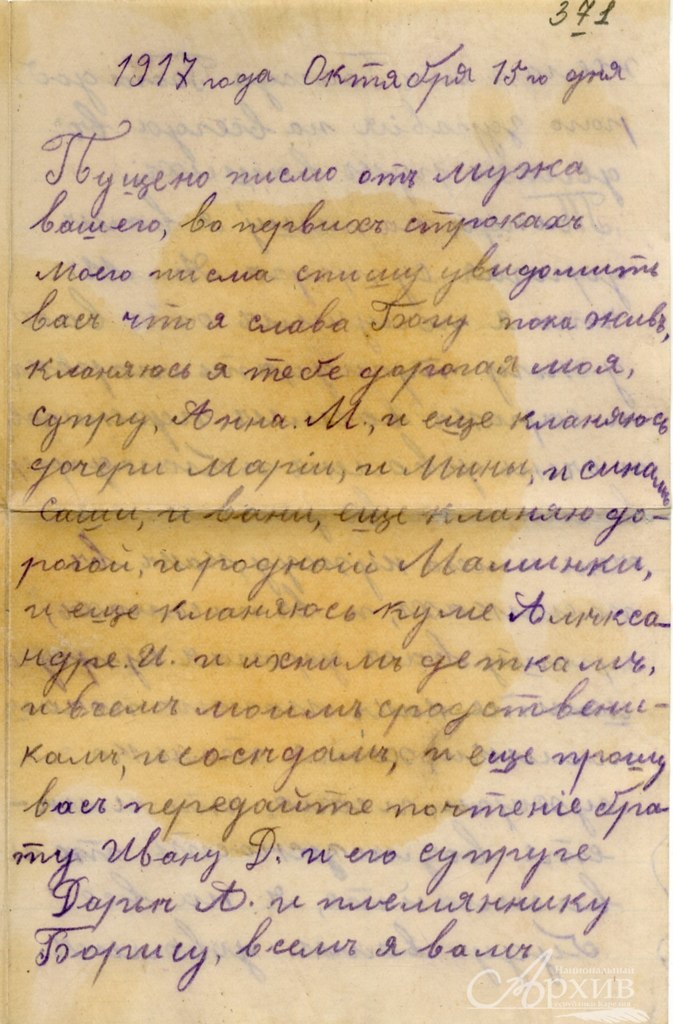 371
1917 года Октября 15го дня
Пущено писмо отъ мужа
вашего, во первихъ строкахъ
моего писма спишу увидомить
васъ что я слава Богу пока живъ,
кланяюсь я тебе дорогая моя,
супру, Анна. М., и еще кланяюсь
дочери Маріи, и Мины, и синамъ
Саши, и Вани, еще кланяю до-
рогой, и родной Маминки,
и еще кланяюсь куме Алекса-
ндре. И. и ихнимъ деткамъ,
и всемъ моимъ сродствени-
камъ, и соседамъ, и еще прошу
васъ передайте почтеніе бра-
ту Ивану Д. и его супруге
Дарьи А. и племяннику
Борису, всемъ я вамъ
Национальный
Архив